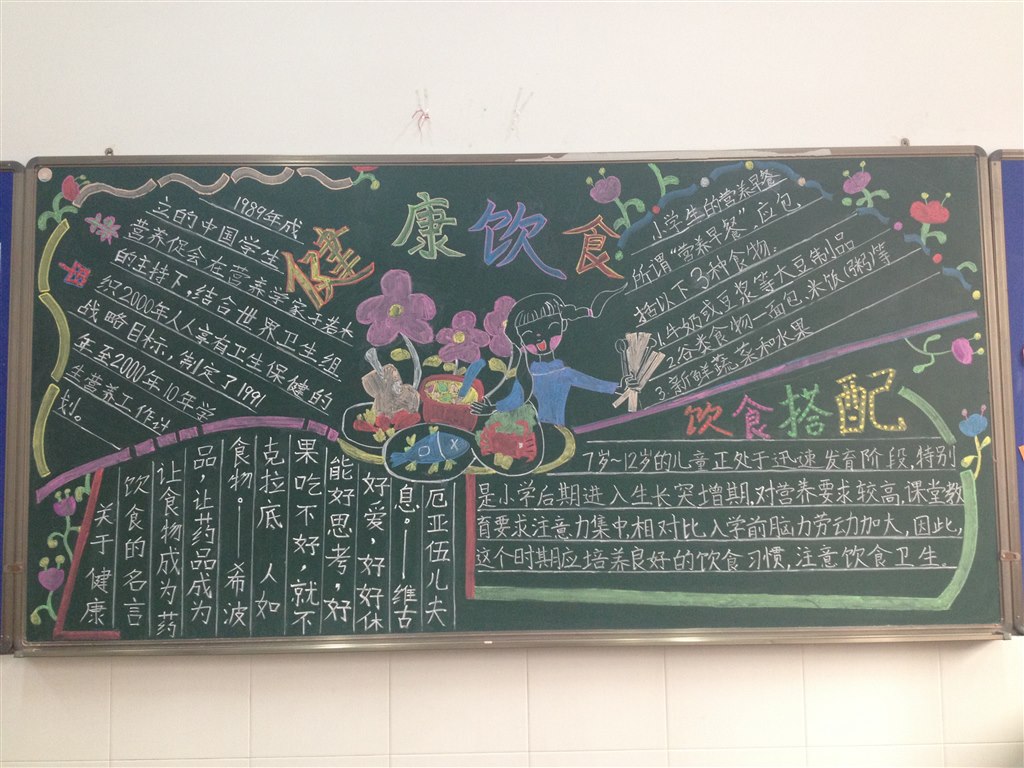 健康饮食
1989年成
立的中国学生
营养促会在营养学家于若木
的主持下,结合世界卫生组
织2000年人人享有卫生保健的
战略目标,制定了1991
年至2000年10年学
生营养工作计
划。
小学生的营养早餐
所谓“营养早餐”,应包
括以下3种食物:
1.牛奶或豆浆等大豆制品
2.谷类食物—面包、米饭(粥)等
3.新鲜蔬菜和水果
饮食搭配
7岁~12岁的儿童正处于迅速发育阶段,特别
是小学后期进入生长突增期,对营养要求较高,课堂教
育要求注意力集中,相对比入学前脑力劳动加大,因此,
这个时期应培养良好的饮食习惯,注意饮食卫生。
关于健康
饮食的名言
让食物成为药
品,让药品成为
食物。——希波
克拉底 人如
果吃不好,就不
能好思考,好
好爱,好好休
息。——维古
厄亚伍儿夫